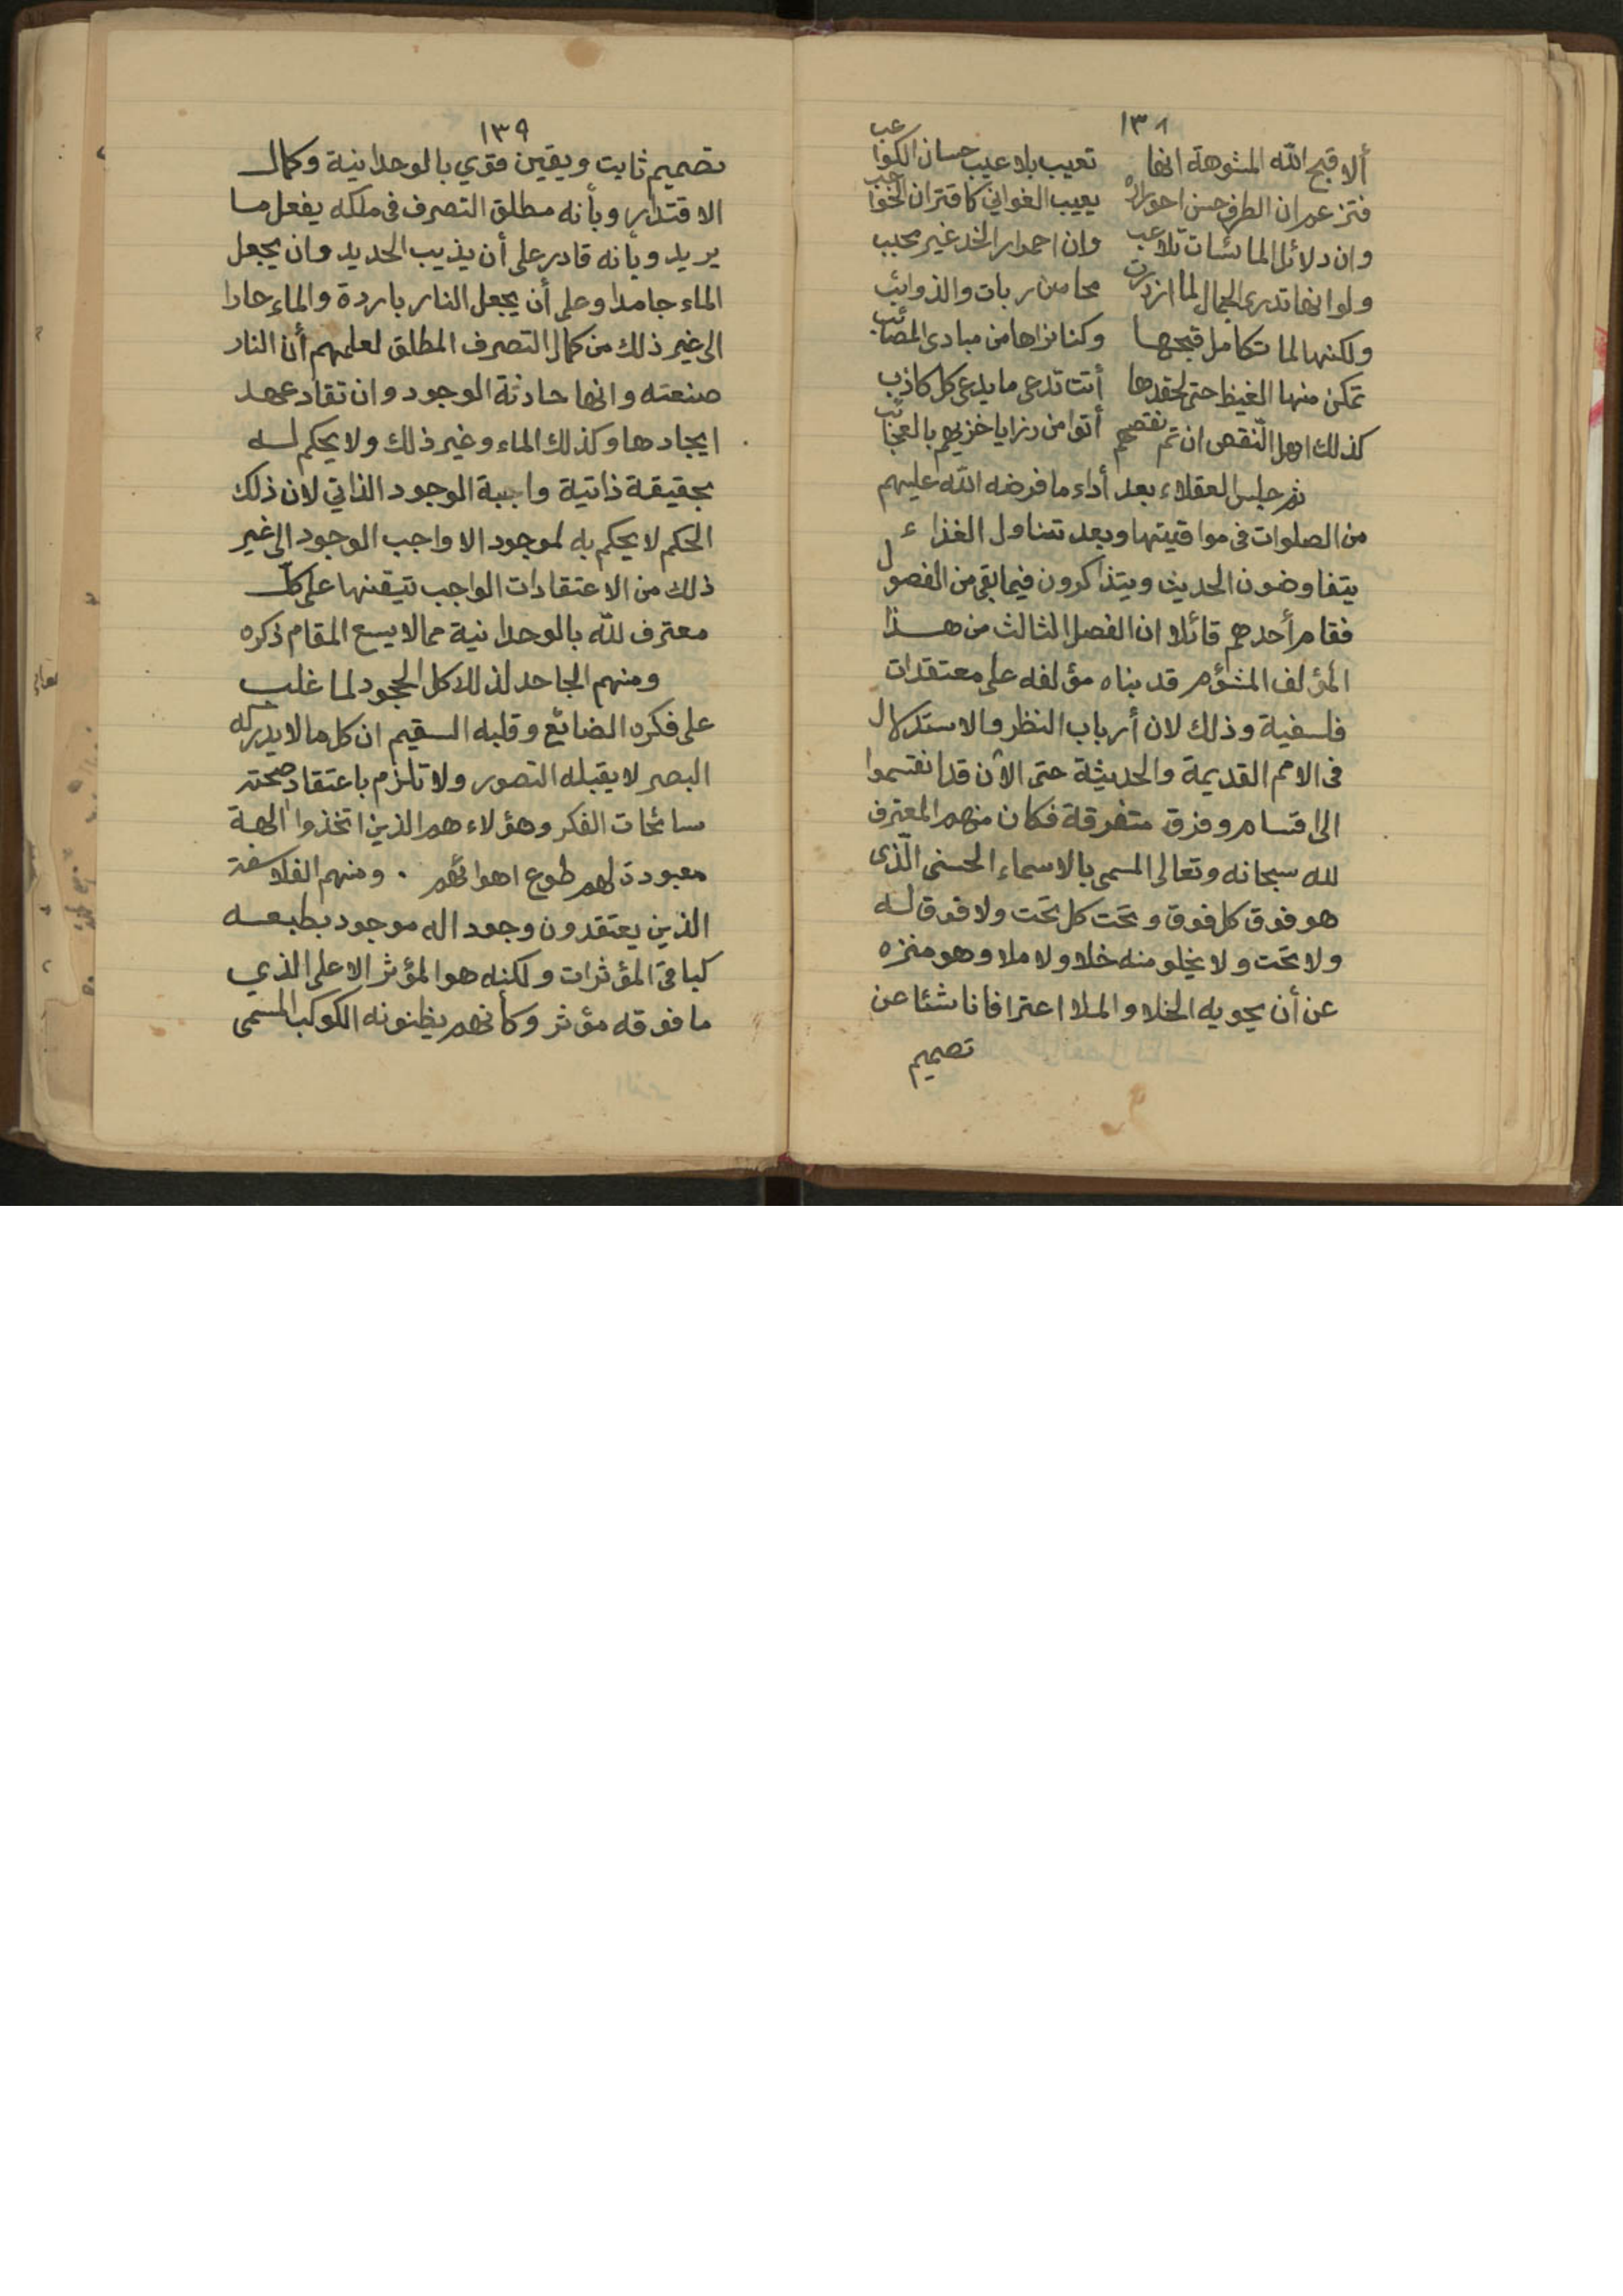 ١٣٨
ألا قبح الله المشوهة انها تعيب بلا عيب حسان الكواعب
فتزعم ان الطرف حسن احوراره يعيب الغواني كاقتران الحواجب
وان دلائل المائسات تلاعب وان احمرار الخد غير محبب
ولو انها تدرى الجمال لما ازدرت محاسن ربات والذوائب
ولكنها لما تكامل قبحها وكنا نراها من مبادى المصائب
تمكن منها الغيظ حتى لحقدها أتت تدعى ما يدعى كل كاذب
كذلك اهل النقص ان تم نقصهم أتوا من رزايا خزيهم بالعجائب
ثم جلس العقلاء بعد أداء ما فرضه الله عليهم
من الصلوات فى مواقيتها وبعد تناول الغذاء
يتفاوضون الحديث ويتذاكرون فيما بقى من الفصول
فقام أحدهم قائلا ان الفصل الثالث من هذا
المؤلف المشؤم قد بناه مؤلفه على معتقدات
فلسفية وذلك لان أرباب النظر والاستدلال
فى الامم القديمة والحديثة حتى الآن قد انقسموا
الى اقسام وفرق متفرقة فكان منهم المعترف
لله سبحانه وتعالى المسمى بالاسماء الحسنى الذى
هو فوق كل فوق وتحت كل تحت ولا فوق له
ولا تحت ولا يخلو منه خلا ولا ملا وهو منزه
عن أن يحويه الخلا والملا اعترافا ناشئا عن
تصميم
١٣٩
تصميم ثابت ويقين قوي بالوحدانية وكمال
الاقتدار وبأنه مطلق التصرف فى ملكه يفعل ما
يريد وبأنه قادر على أن يذيب الحديد وان يجعل
الماء جامدا وعلى أن يجعل النار باردة والماء حارا
الى غير ذلك من كمال التصرف المطلق لعلمهم أن النار
صنعته وانها حادثة الوجود وان تقادم عهد
ايجادها وكذلك الماء وغير ذلك ولا يحكم له
بحقيقة ذاتية واجبة الوجود الذاتي لان ذلك
الحكم لا يحكم به لموجود الا واجب الوجود الى غير
ذلك من الاعتقادات الواجب تيقنها على كل
معترف لله بالوحدانية مما لا يسع المقام ذكره
ومنهم الجاحد لذلك كل الجحود لما غلب
على فكره الضائع وقلبه السقيم ان كل ما لا يدركه
البصر لا يقبله التصور ولا تلزم باعتقاد صحته
سائحات الفكر وهؤلاء هم الذين اتخذوا الهة
معبودة لهم طوع اهوائهم . ومنهم الفلاسفة
الذين يعتقدون وجود اله موجود بطبعه
كباقى المؤثرات ولكنه هو المؤثر الاعلى الذي
ما فوقه مؤثر وكأنهم يظنونه الكوكب المسمى